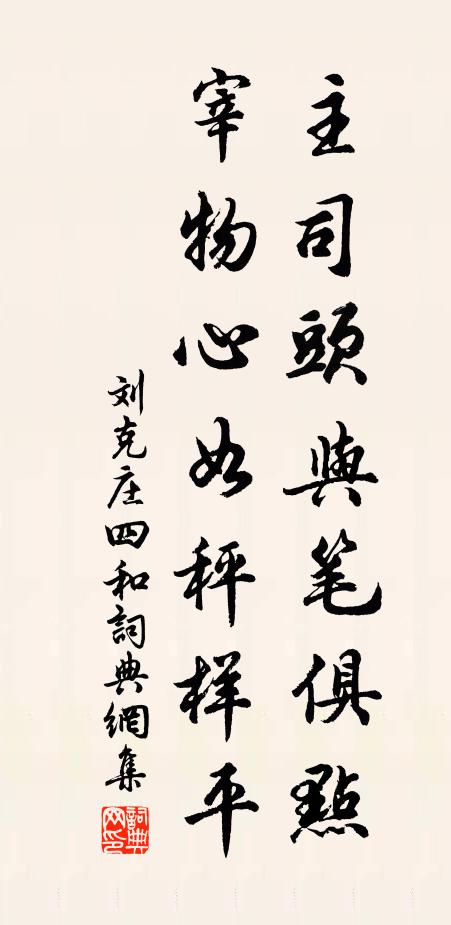 主司頭與笔俱點
宰物心如秤样平
刘克庄四和詞典網集
詞典網印